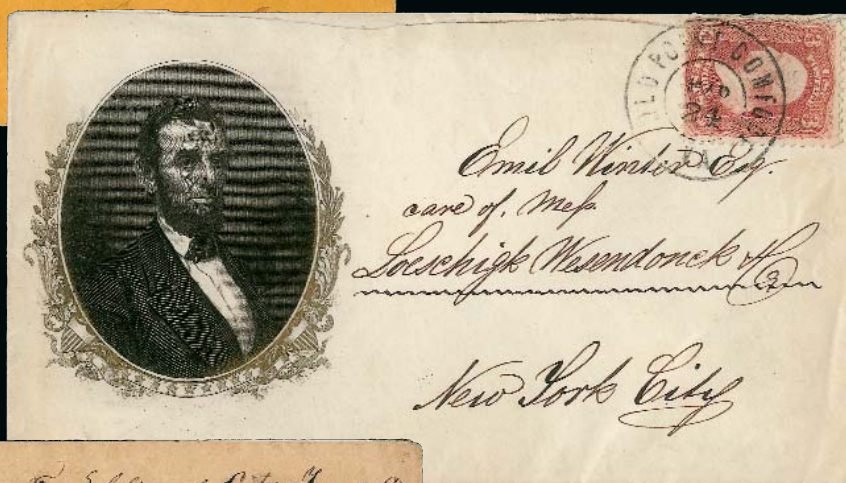 OLD POINT COMFORT
24
VA
Emil Winter Esq.
care of. Mess.
Loeschigk Wesendonck &
New York City